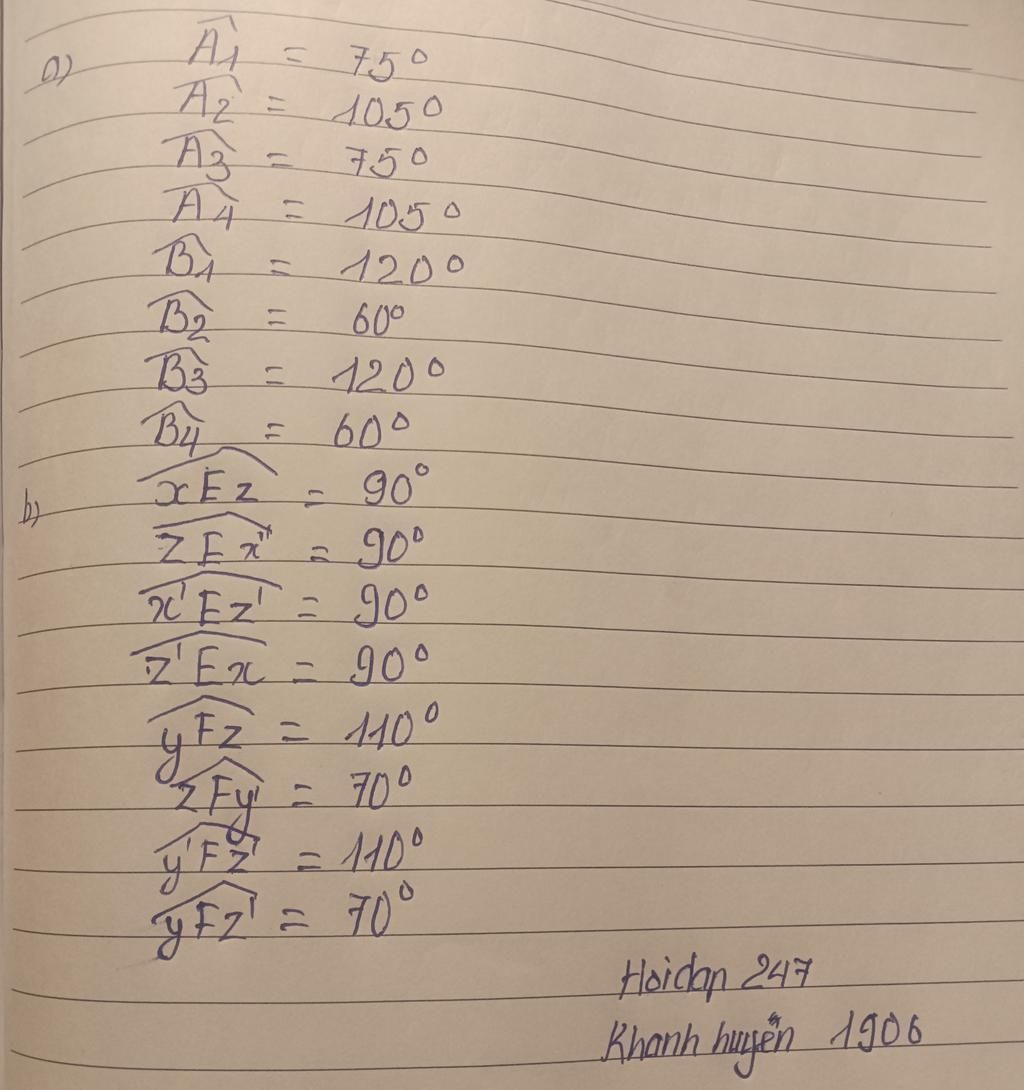 a) Â1 = 75°
Â2 = 105°
Â3 = 75°
Â4 = 105°
B̂1 = 120°
B̂2 = 60°
B̂3 = 120°
B̂4 = 60°
b) xEz = 90°
zEx' = 90°
x'Ez' = 90°
z'Ex = 90°
yFz = 110°
zFy' = 70°
y'Fz' = 110°
yFz' = 70°
Hoidap 247
Khanh huyền 1906